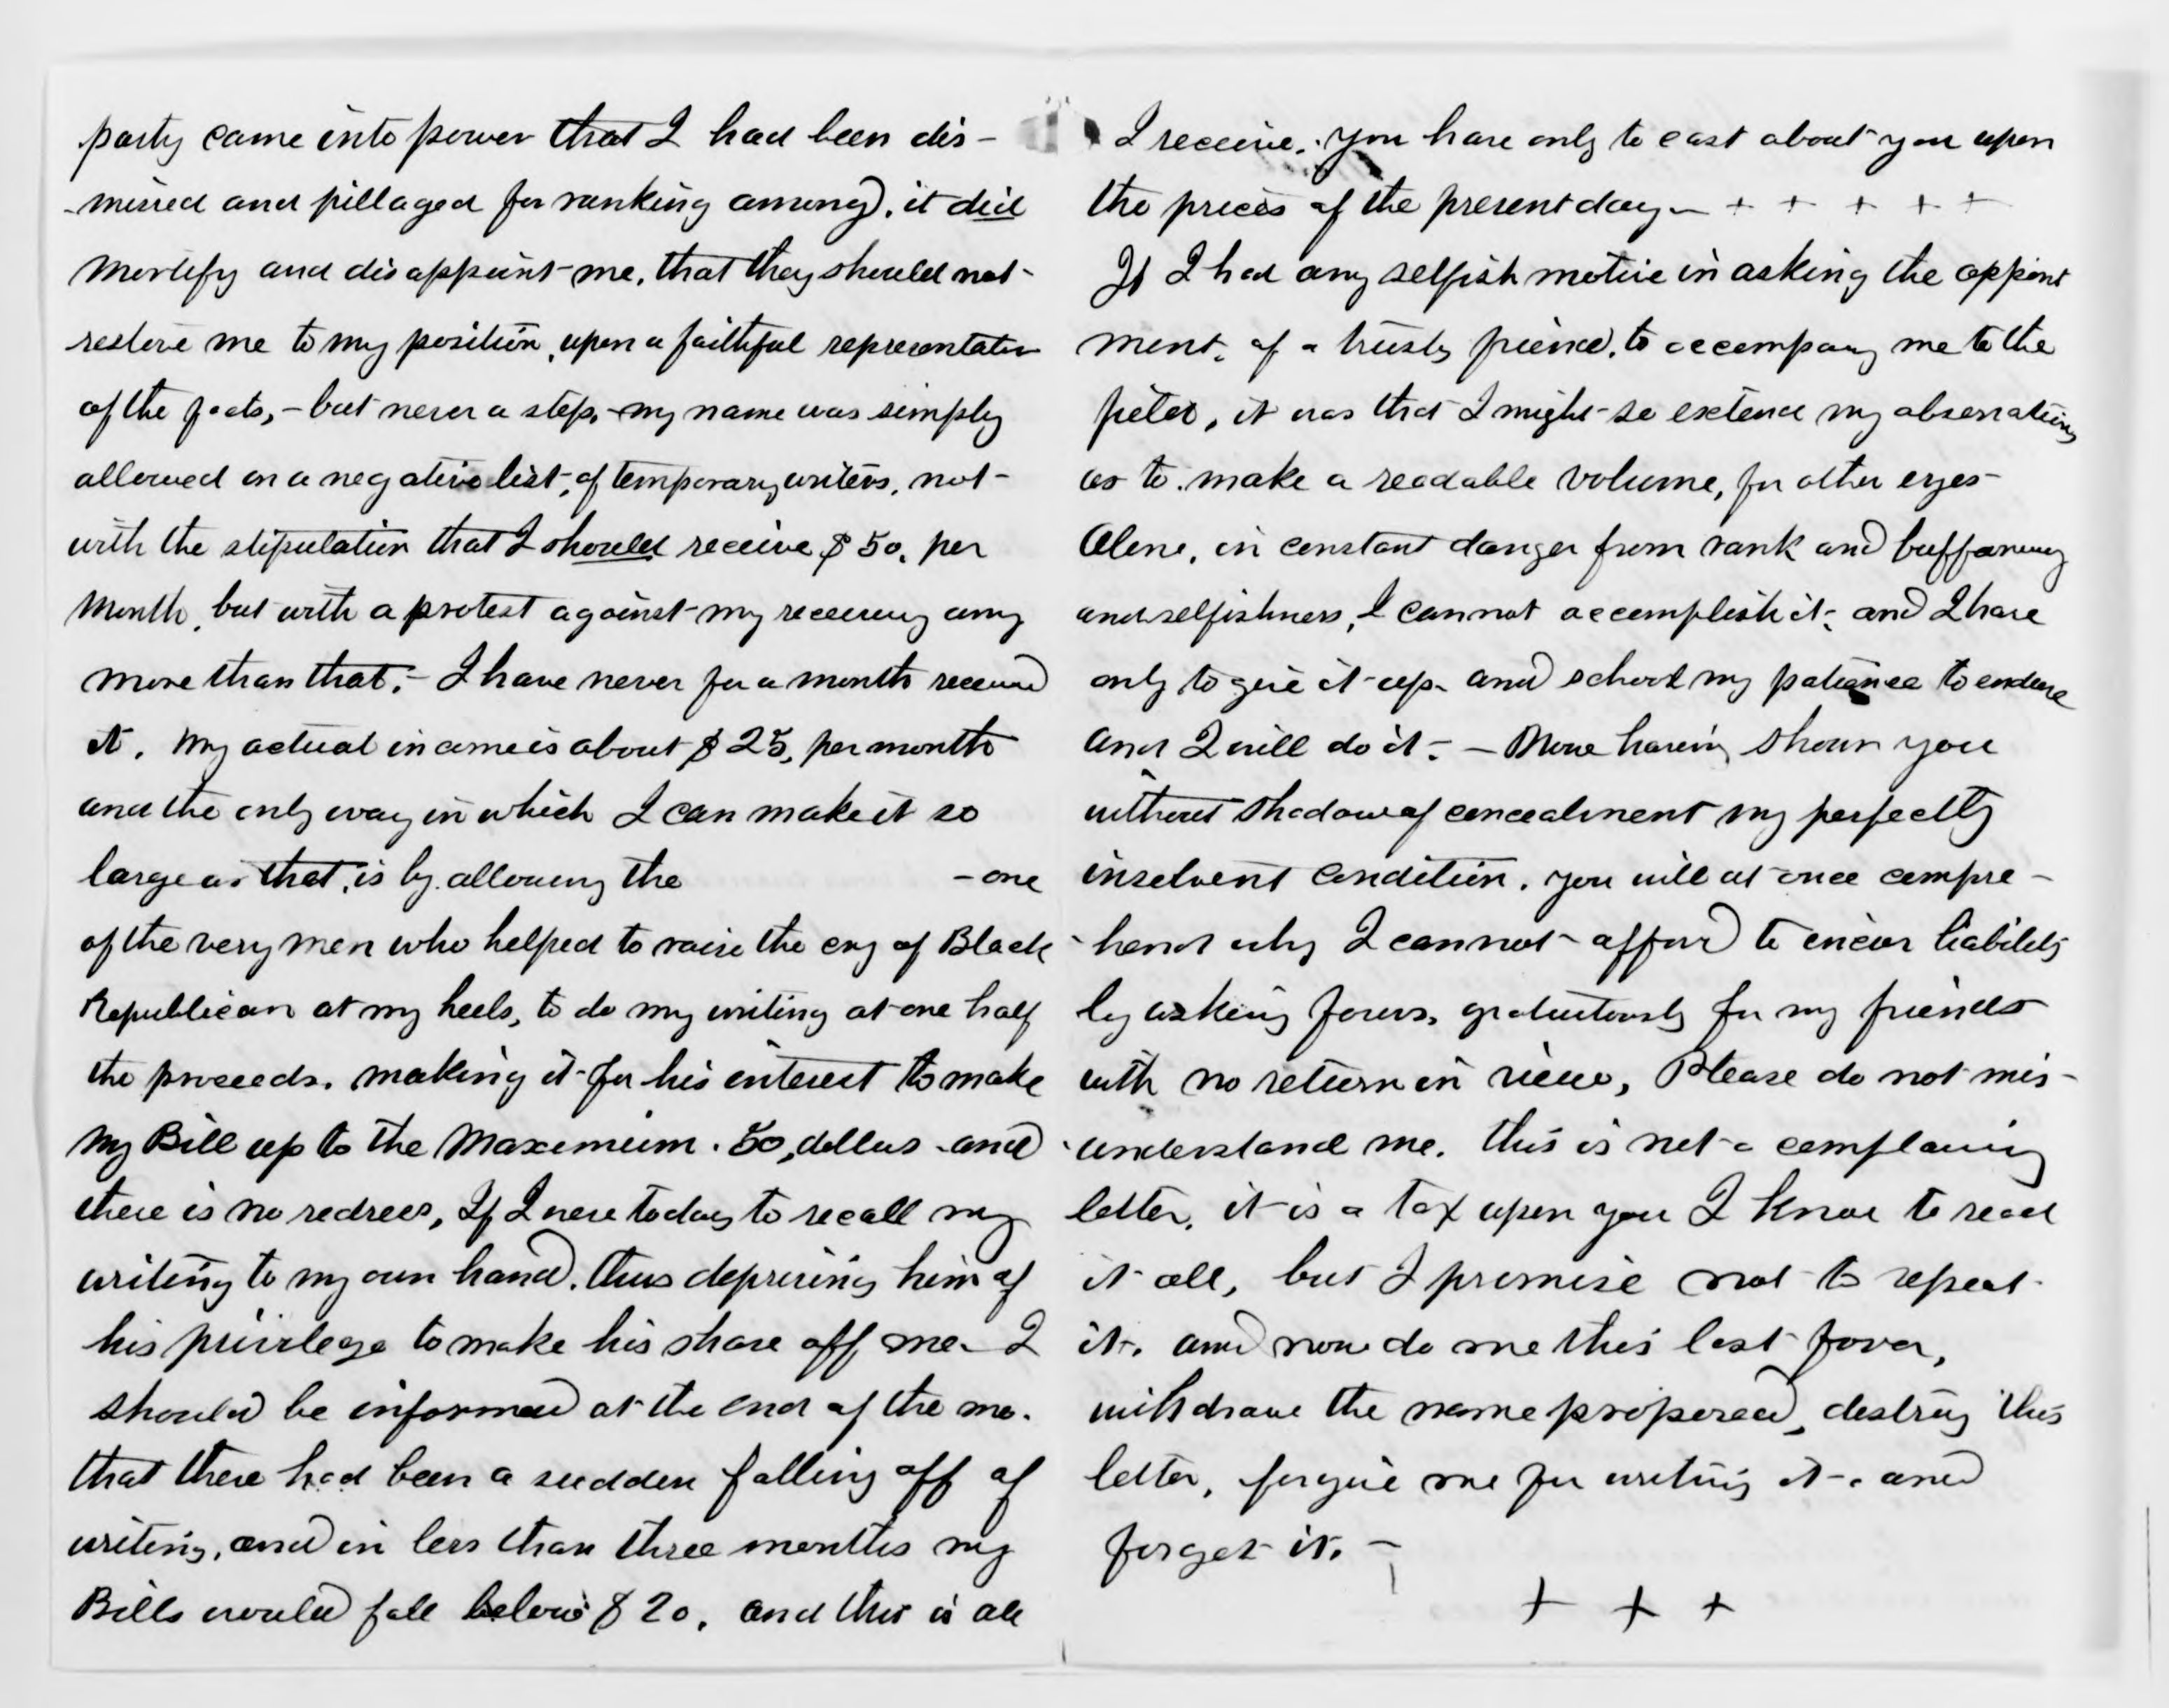 party came into power that I had been dis-
-missed and pillaged for ranking among), it did
mortify and disappoint me, that they should not
restore me to my position, upon a faithful representation
of the facts, - but never a step, - my name was simply
allowed on a negative list, of temporary writers, not
with the stipulation that I should receive $50. per
month, but with a protest against my receiving any
more than that. - I have never for a month received
it. My actual income is about $25, per month
and the only way in which I can make it so
large as that, is by allowing the - one
of the very men who helped to raise the cry of Black
Republican at my heels, to do my writing at one half
the proceeds. making it for his interest to make
my Bill up to the Maximum. 50, dollars - and
there is no redress, If I were today to recall my
writing to my own hand, thus depriving him of
his privilege to make his share off me - I
should be informed at the end of the mo.
that there had been a sudden falling off of
writing, and in less than three months my
Bills would fall below $20. and this is all
I receive. you have only to cast about you upon
the prices of the present day - + + + + +
If I had any selfish motive in asking the appoint
ment, of a trusty friend, to accompany me to the
field, it was that I might so extend my observations
as to make a readable volume, for other eyes -
Alone, in constant danger from rank and buffoonery
and selfishness, I cannot accomplish it, and I have
only to give it up - and school my patience to endure
and I will do it - - Now having shown you
without shadow of concealment my perfectly
insolvent condition, you will at once compre -
- hend why I cannot afford to incur liability
by asking favors, gratuitously for my friends
with no return in view, Please do not mis -
- understand me. this is not a complaining
letter, it is a tax upon you I know to read
it all, but I promise not to repeat
it. and now do me this last favor,
withdraw the name proposed, destroy this
letter, forgive me for writing it - and
forget it. -
+ + +